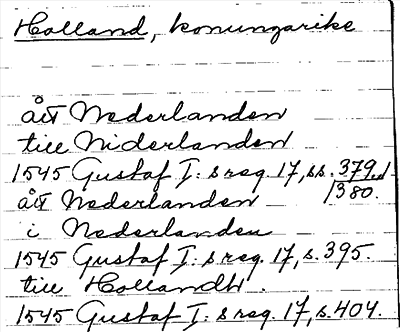 Holland, konungarike
åt Nederlanden
till Niderlanden
1545 Gustaf I:s reg. 17, ss. 379,
åt Nederlanden 380.
i Nederlanden
1545 Gustaf I:s reg. 17, s. 395.
till Hollandh.
1545 Gustaf I:s reg. 17, s. 404.